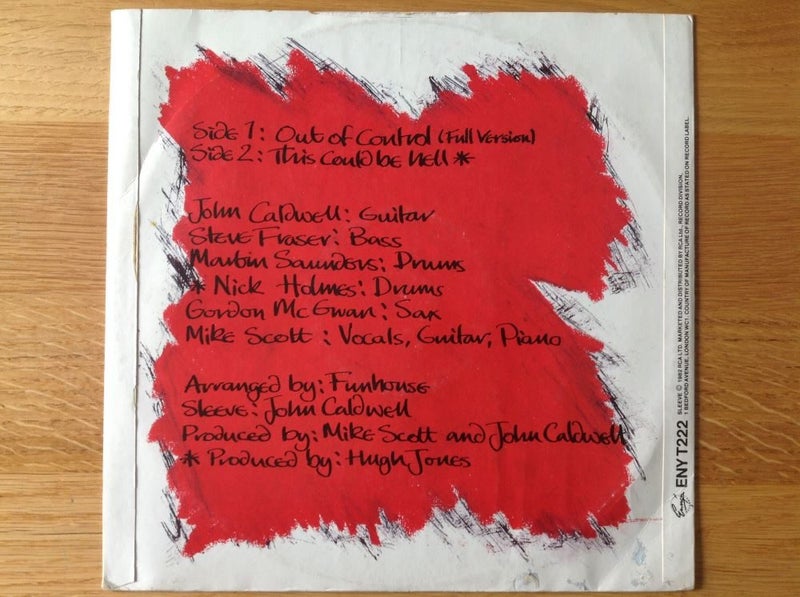 Side 1: Out of Control (Full Version)
Side 2: This Could be Hell *
John Caldwell: Guitar
Steve Fraser: Bass
Martin Saunders: Drums
* Nick Holmes: Drums
Gordon McGwan: Sax
Mike Scott: Vocals, Guitar, Piano
Arranged by: Funhouse
Sleeve: John Caldwell
Produced by: Mike Scott and John Caldwell
* Produced by: Hugh Jones
Ensign
ENY T222
SLEEVE © 1982 RCA LTD. MARKETED AND DISTRIBUTED BY RCA LTD., RECORD DIVISION,
1 BEDFORD AVENUE, LONDON WC1. COUNTRY OF MANUFACTURE OF RECORD AS STATED ON RECORD LABEL.